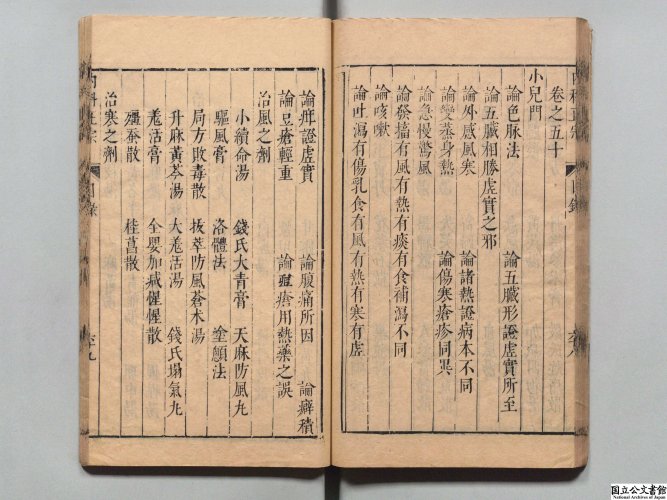 卷之五十
小兒門
論色脉法 論五臟形證虛實所至
論五臟相勝虛實之邪
論外感風寒 論諸熱證病本不同
論變蒸身熱 論傷寒瘡疹同異
論急慢驚風
論發搐有風有熱有痰有食補瀉不同
論咳嗽
論吐瀉有傷乳食有風有熱有寒有虛
論疳證虛實 論腹痛所因 論癖積
論豆瘡輕重 論瘡用熱藥之誤
治風之劑
小續命湯 錢氏大青膏 天麻防風丸
驅風膏 洛體法 塗顖法
局方敗毒散 拔萃防風蒼木湯
升麻黃芩湯 大羗活湯 錢氏塌氣丸
羗活膏 全嬰加减惺惺散
殭蚕散 桂菖散
治寒之劑
目錄
國立公文書館
National Archives of Japan